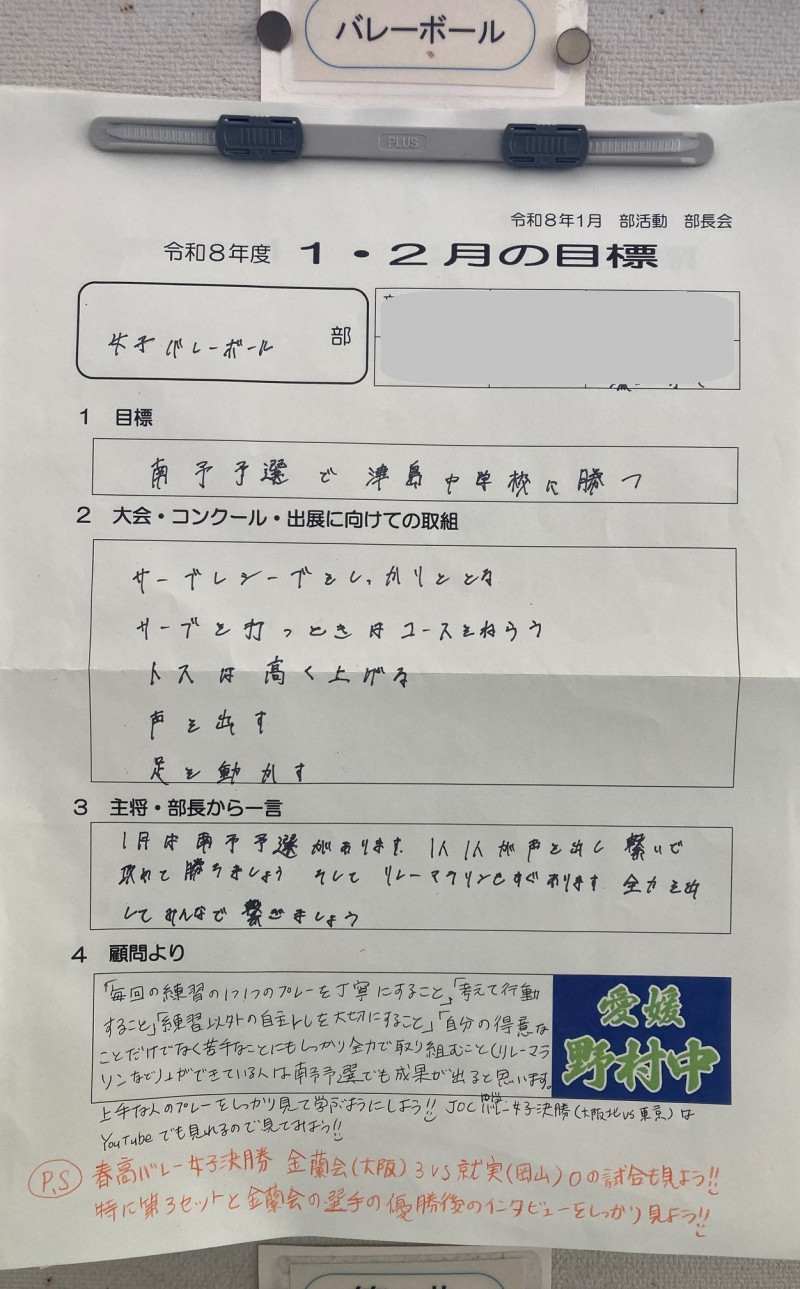 バレーボール
PLUS
令和8年1月 部活動 部長会
令和8年度 1・2月の目標
女子バレーボール 部
1 目標
南予予選で津島中学校に勝つ
2 大会・コンクール・出展に向けての取組
サーブレシーブをしっかりとる
サーブを打つときはコースをねらう
トスは高く上げる
声を出す
足を動かす
3 主将・部長から一言
1月は南予予選があります。1人1人が声を出し繋いで
攻めて勝ちましょう そして リレーマラソンもすぐあります 全力を出
してみんなで繋ぎましょう
4 顧問より
「毎回の練習の1つ1つのプレーを丁寧にすること」、「考えて行動
すること」「練習以外の自主トレを大切にすること」「自分の得意な
ことだけでなく苦手なことにもしっかり全力で取り組むこと(リレーマラ
ソンなど)」ができている人は南予予選でも成果が出ると思います。
愛媛
野村中
上手な人のプレーをしっかり見て学ぶようにしよう!! JOC バレー女子決勝(大阪北VS東京)は
YouTubeでも見れるので見てみよう!!
P.S 春高バレー女子決勝 金蘭会(大阪)3 VS 就実(岡山)0の試合も見よう!!
特に第3セットと金蘭会の選手の優勝後のインタビューをしっかり見よう!!